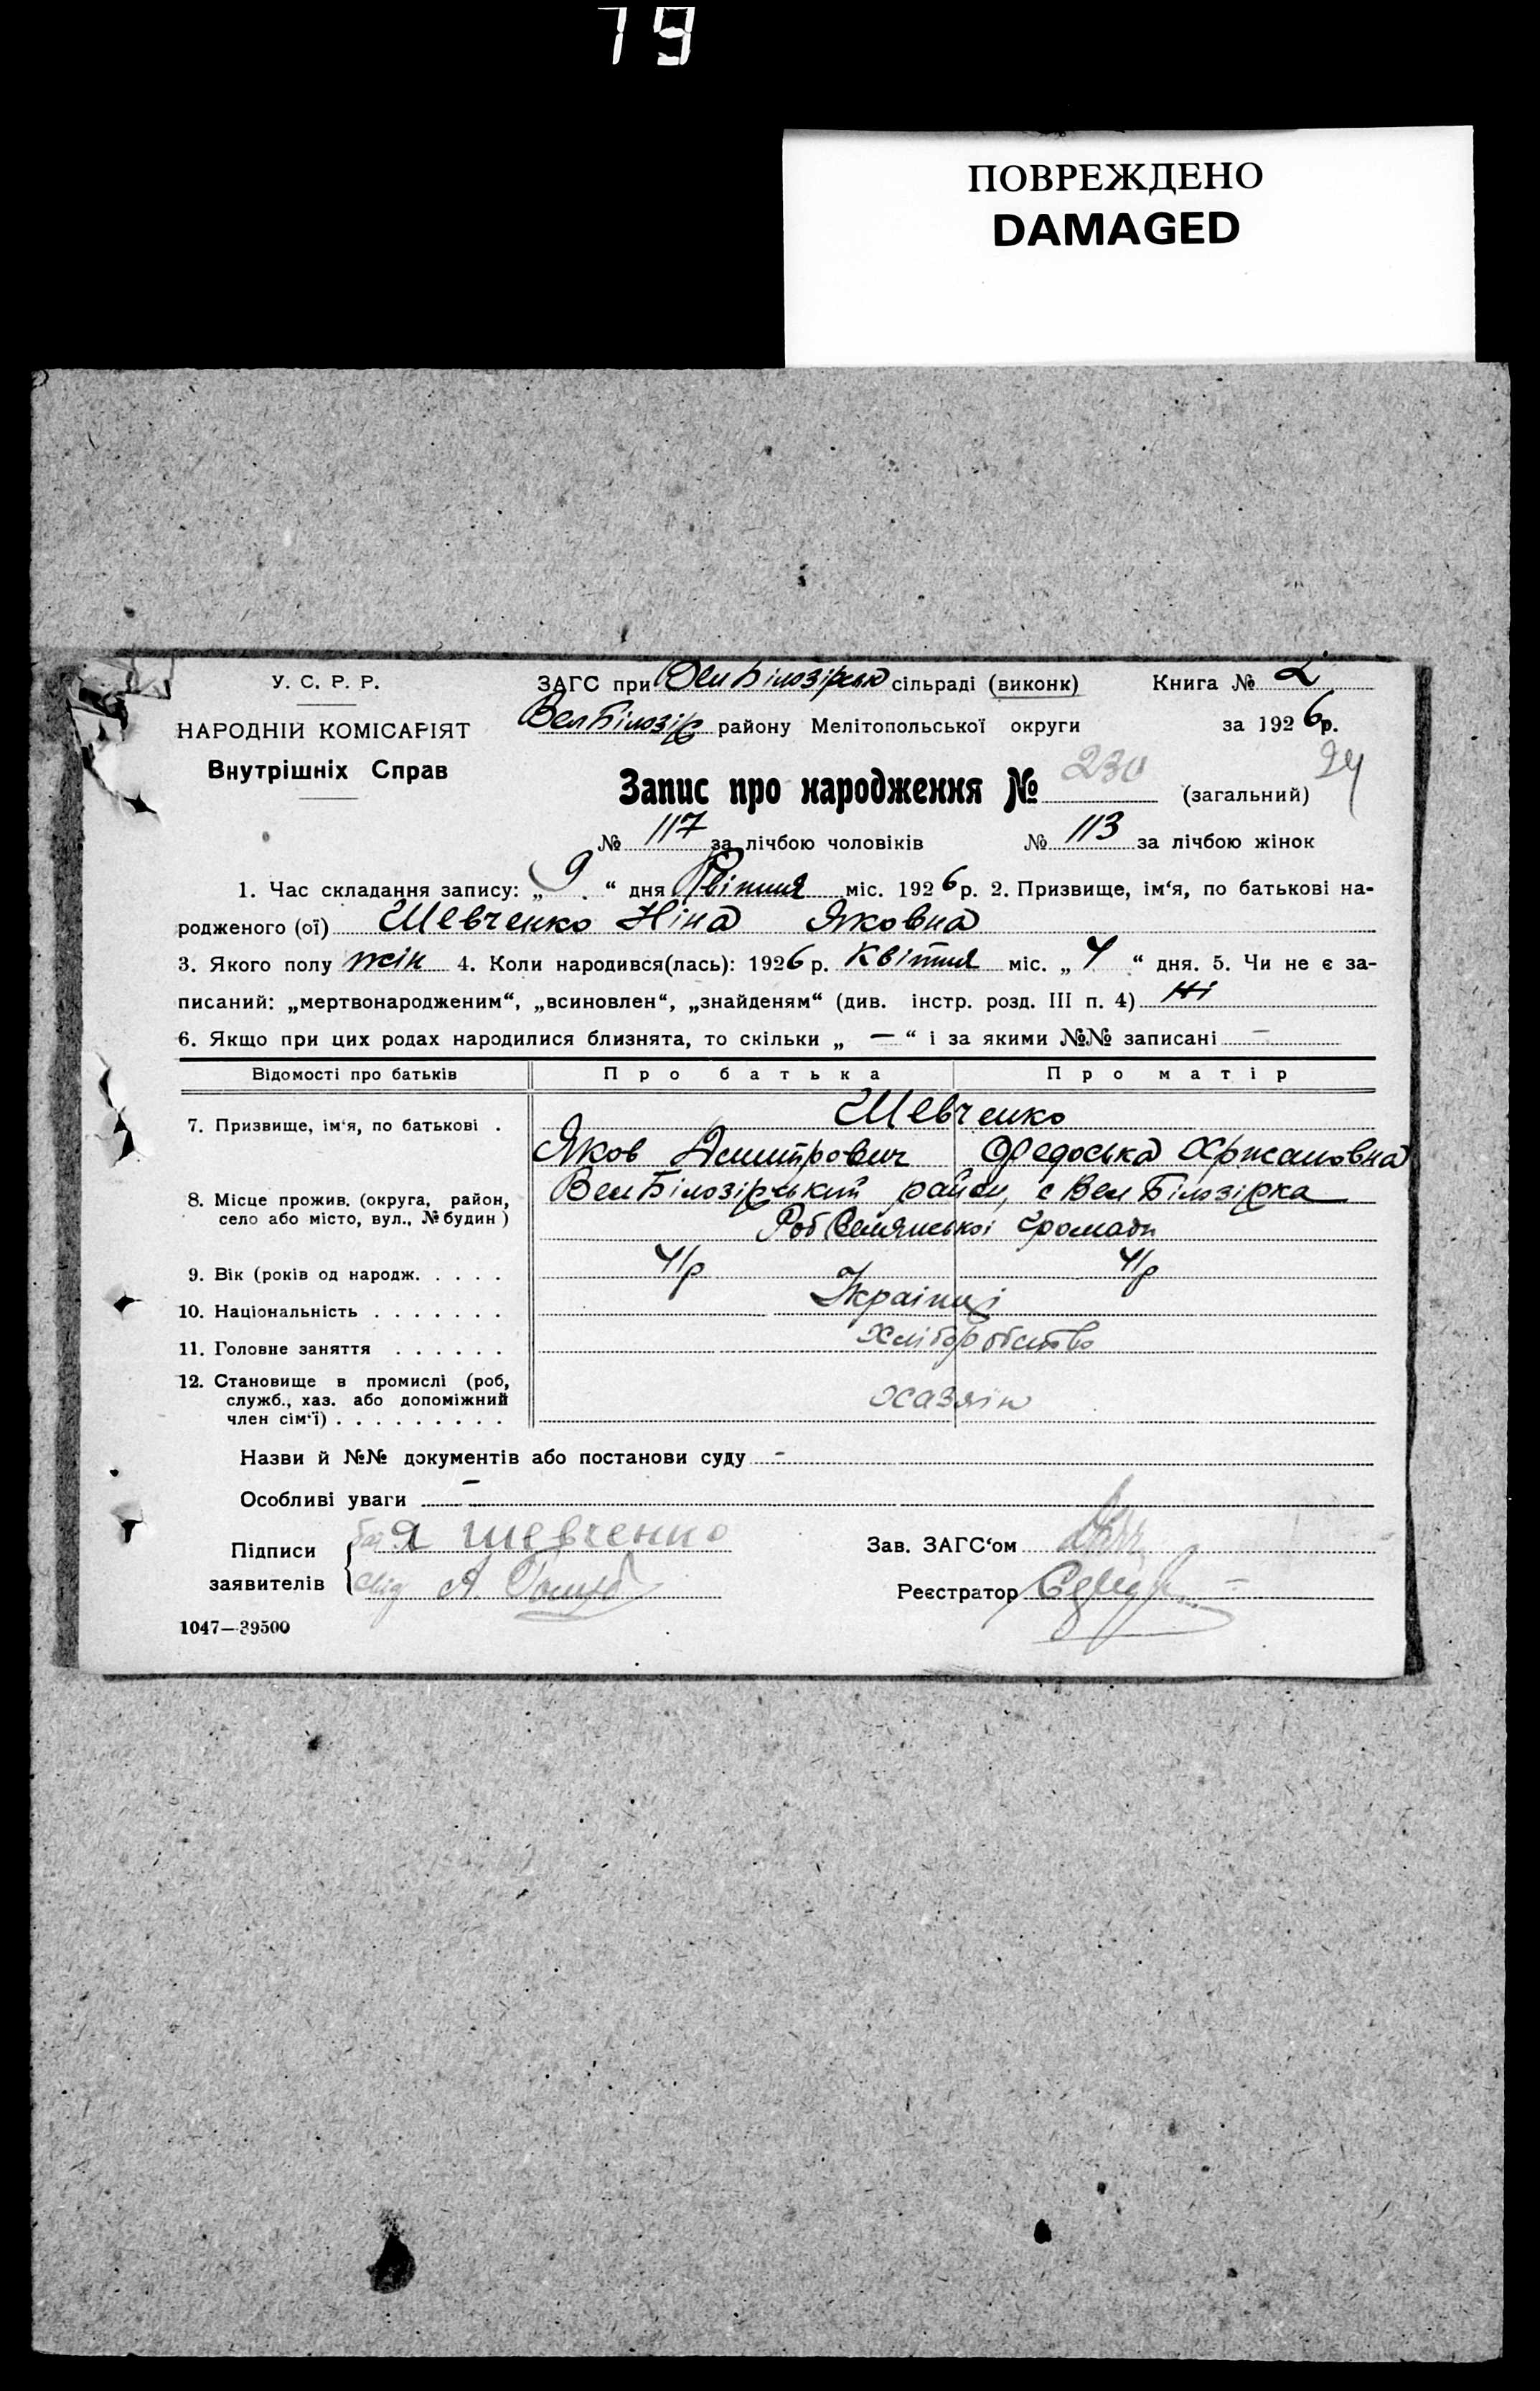 79
ПОВРЕЖДЕНО
DAMAGED
У. С. Р. Р.
НАРОДНІЙ КОМІСАРІЯТ
Внутрішніх Справ
ЗАГС при Вел Білозірськ сільраді (виконк) Книга № 2
Вел Білозір району Мелітопольської округи за 1926р.
24
Запис про народження № 230 (загальний)
№ 117 за лічбою чоловіків № 113 за лічбою жінок
1. Час складання запису: „9“ дня Квітня міс. 1926 р. 2. Призвище, ім‘я, по батькові на-
родженого (ої) Шевченко Ніна Яковна
3. Якого полу жін 4. Коли народився(лась): 1926 р. Квітня міс. „4“ дня. 5. Чи не є за-
писаний: „мертвонародженим“, „всиновлен“, „знайденям“ (див. інстр. розд. III п. 4) Ні
6. Якщо при цих родах народилися близнята, то скільки „ — “ і за якими №№ записані —
Відомості про батьків Про батька Про матір
7. Призвище, ім‘я, по батькові . Шевченко
Яков Димитрович Федоська
8. Місце прожив. (округа, район, село або місто, вул., № будин) Вел Білозірський район, с Вел Білозірка
громади
9. Вік (років од народж. . . . . 41р 41р
10. Національність . . . . . . . Українці
11. Головне заняття . . . . . . Хліборобство
12. Становище в промислі (роб, служб., хаз. або допоміжний член сім‘ї) . . . . . . . . . хазяїн
Назви й №№ документів або постанови суду -
Особливі уваги -
Підписи заявителів { Я Шевченко
А. Голуб
Зав. ЗАГС‘ом
Реєстратор
1047—39500